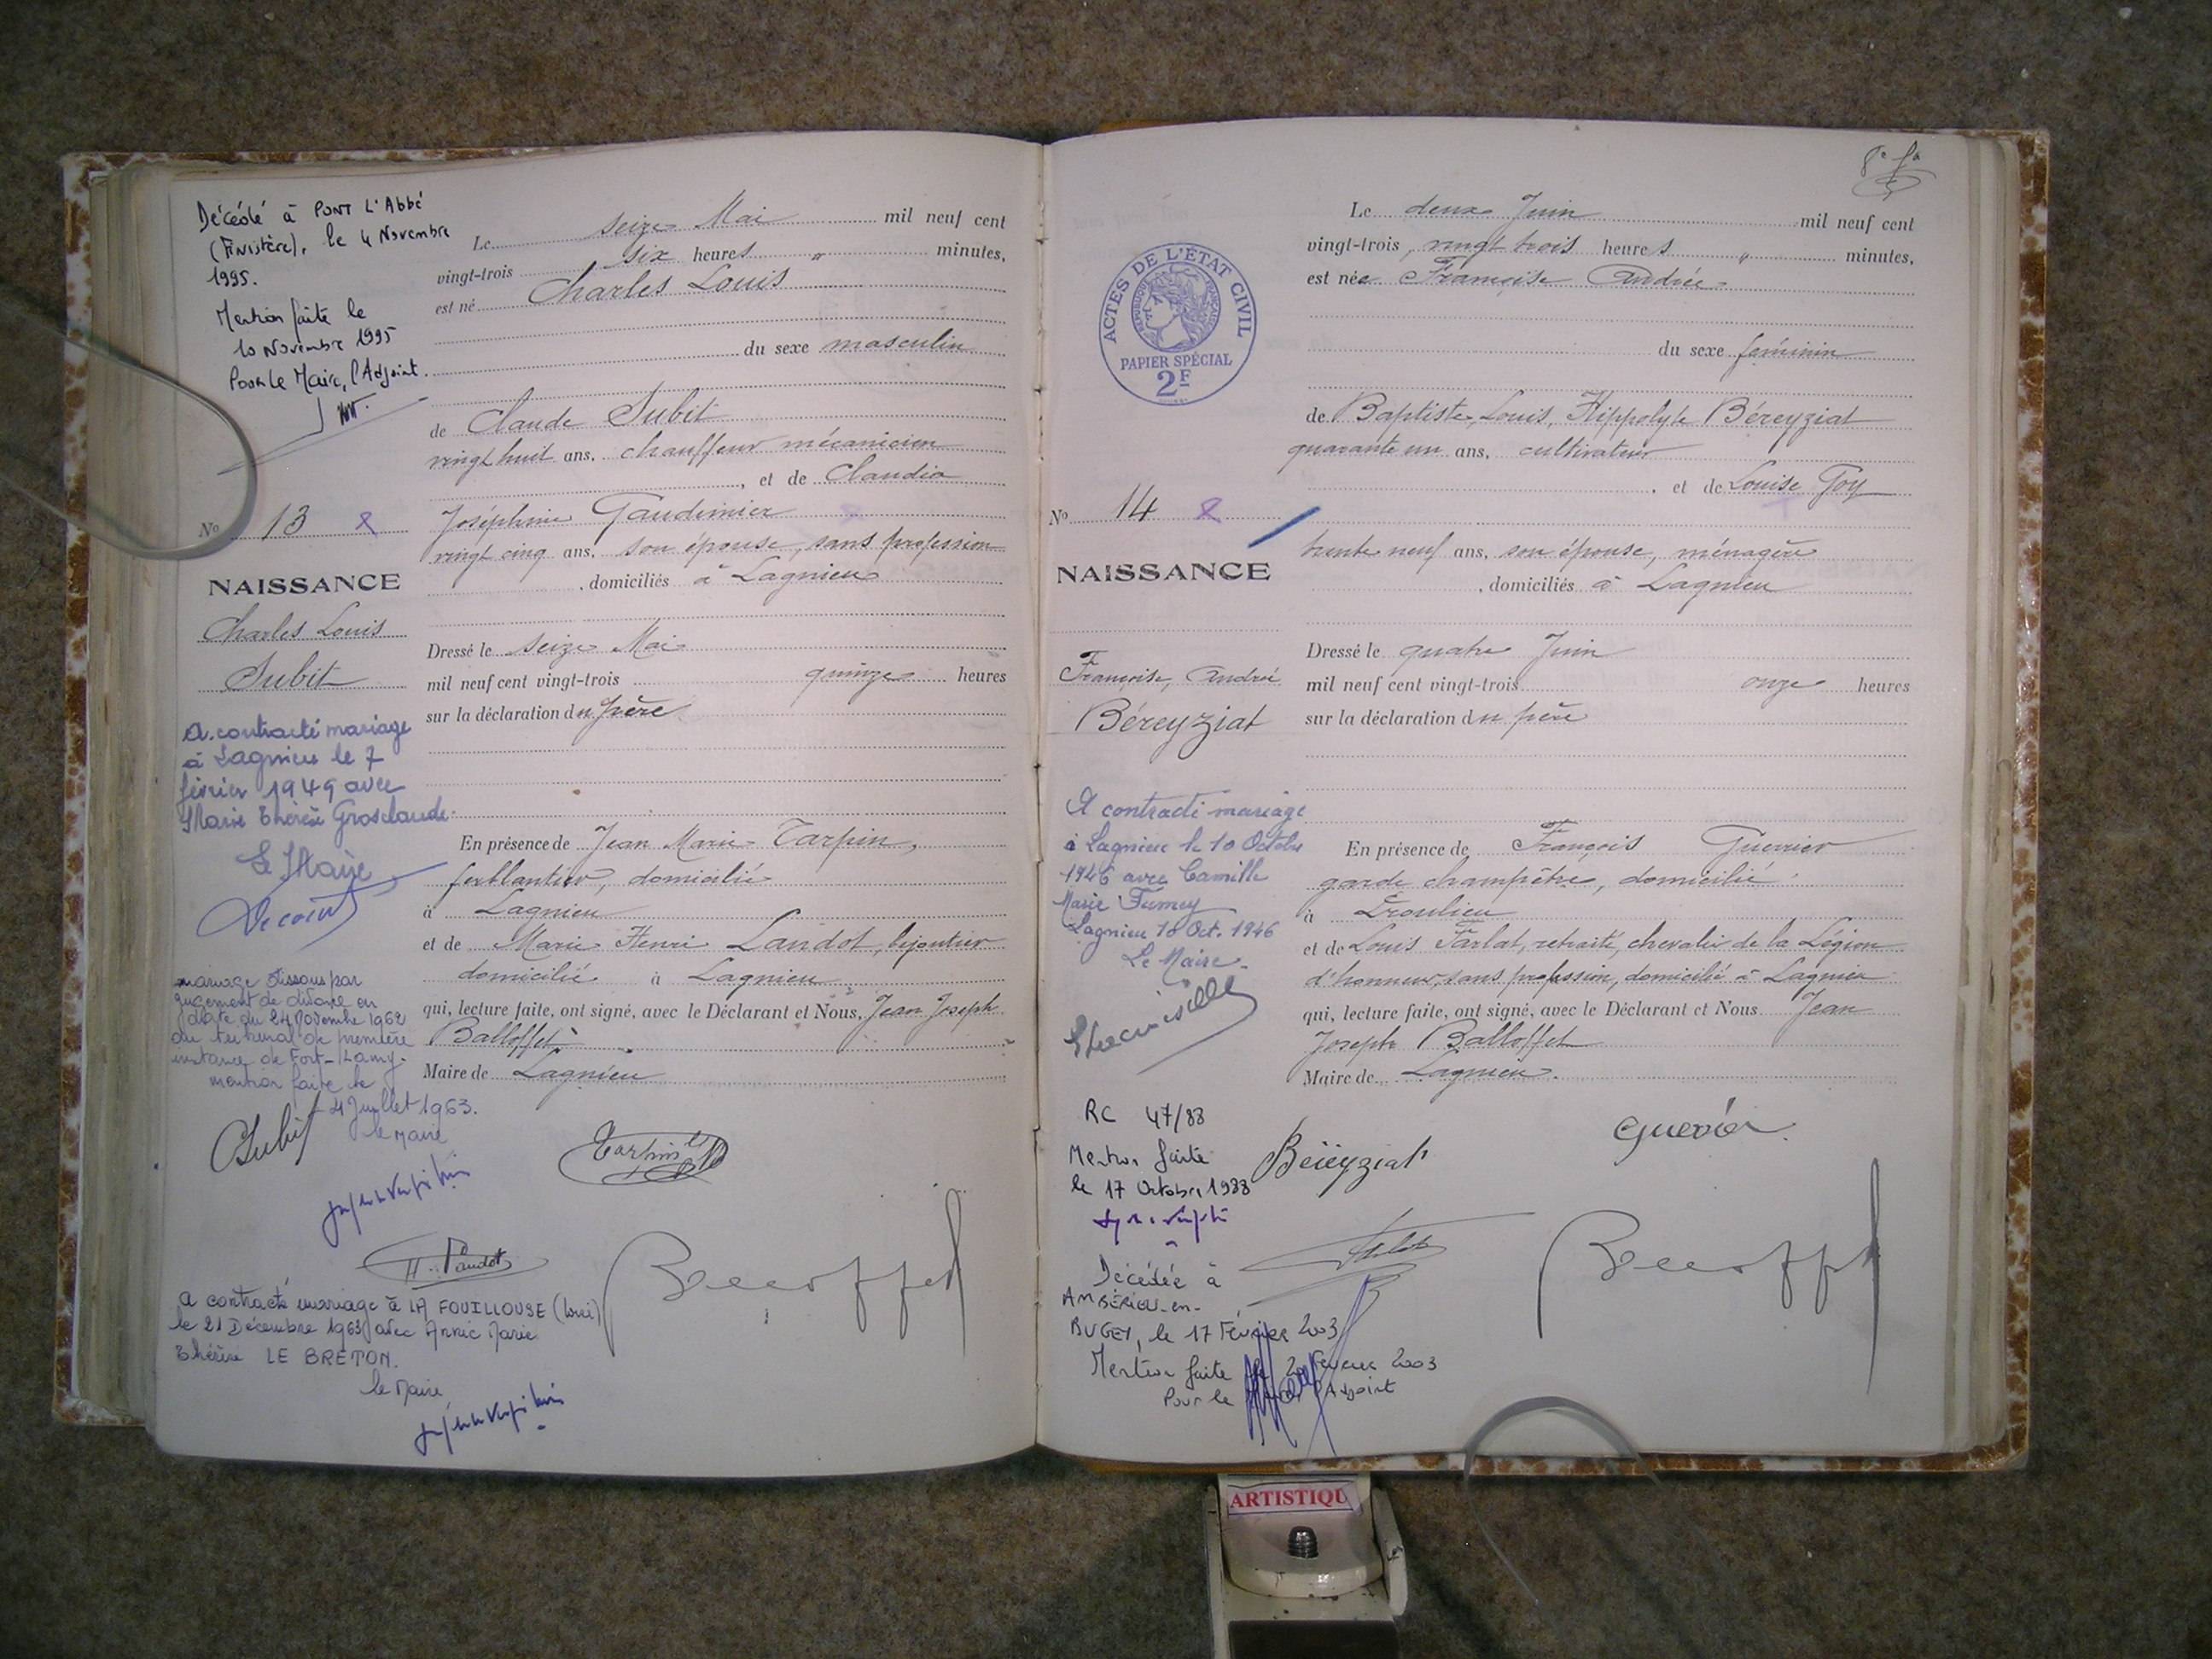 Décédé à PONT L'Abbé
(FINISTère), le 4 Novembre
1995.
Mention faite le
10 Novembre 1995
Pour le Maire, l'Adjoint.
Le seize Mai mil neuf cent
vingt-trois six heures " minutes,
est né Charles Louis
du sexe masculin
de Claude Subit
vingt huit ans, chauffeur mécanicien
, et de Claudia
Joséphine Gaudimier
vingt cinq ans, son épouse, sans profession
, domiciliés à Lagnieu
No 13
NAISSANCE
Charles Louis
Subit
Dressé le seize Mai
mil neuf cent vingt-trois quinze heures
sur la déclaration du père
A contracté mariage
à Lagnieu le 7
février 1949 avec
Marie Thérèse Grosclaude.
Le Maire
En présence de Jean Marie Tarpin,
ferblantier, domicilié
à Lagnieu
et de Marie Henri Landot, bijoutier
domicilié à Lagnieu
qui, lecture faite, ont signé, avec le Déclarant et Nous, Jean Joseph
Balloffet
Maire de Lagnieu
mariage dissous par
jugement de divorce en
date du 24 Novembre 1962
du tribunal de première
instance de Fort-Lamy.
mention faite le
4 Juillet 1963.
le Maire
CSubit
Tarpin
H. Landot
Balloffet
a contracté mariage à LA FOUILLOUSE (Loire)
le 21 Décembre 1963 avec Annie Marie
Thérèse LE BRETON.
le Maire
ACTES DE L'ÉTAT CIVIL
RÉPUBLIQUE FRANÇAISE
PAPIER SPÉCIAL
2F
Le deux Juin mil neuf cent
vingt-trois, vingt trois heures " minutes,
est née Françoise Andrée
du sexe féminin
de Baptiste, Louis, Hippolyte Béreyziat
quarante un ans, cultivateur
, et de Louise Goy
trente neuf ans, son épouse, ménagère
, domiciliés à Lagnieu
No 14
NAISSANCE
Françoise, Andrée
Béreyziat
Dressé le quatre Juin
mil neuf cent vingt-trois onze heures
sur la déclaration du père
A contracté mariage
à Lagnieu le 10 Octobre
1946 avec Camille
Marie Fumey
Lagnieu 10 Oct. 1946
Le Maire
En présence de François Guerrier
garde champêtre, domicilié
à Proulieu
et de Louis Farlat, retraité, chevalier de la Légion
d'honneur, sans profession, domicilié à Lagnieu
qui, lecture faite, ont signé, avec le Déclarant et Nous Jean
Joseph Balloffet
Maire de Lagnieu.
RC 47/88
Mention faite
le 17 Octobre 1988
Béreyziat
Guerrier
Balloffet
Décédée à
AMBÉRIEU-en-
BUGEY, le 17 Février 2003
Mention faite le 20 Février 2003
Pour le Maire, l'Adjoint
ARTISTIQU